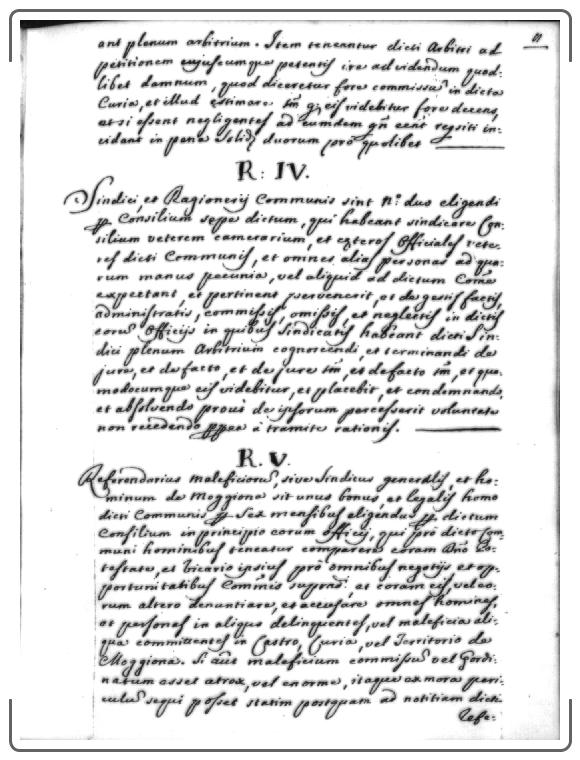 11
ant plenum arbitrium. Item teneantur dicti Arbitri ad
petitionem cujuscumque petentis ire ad videndum quod-
libet damnum, quod diceretur fore commissũ in dicta
Curia, et illud estimare tm̃ q. eis videbitur fore decens,
et si essent negligentes ad eumdem
cidant in pena Solid. duorum prõ quolibet
R: IV.
Sindici, et Ragionerij Communis sint n.º duo eligendi
Consilium sepe dictum, qui habeant sindicare Con-
silium veterem camerarium, et exteros Officiales vete-
res dicti Communis, et omnes alias personas ad qua-
rum manus pecunia, vel aliquid ad dictum Come
expectant, et pertinent pervenerit, et de gestis factis,
administratis, commissis, omissis, et neglectis in dictis
eorũ Officijs in quibus Sindicatis habeant dicti Sin-
dici plenum Arbitrium cognoscendi, et terminandi de
jure, et de facto, et de jure tm̃, et de facto tm̃, et quo-
modocumque eis videbitur, et placebit, et condemnando,
et absolvendo prout de ipsorum processerit voluntate
non recedendo à tramite rationis.
R. V.
Referendarius maleficiorũ, sive Sindicus generalis, et ho-
minum de Moggiona sit unus bonus, et legalis homo
dicti Communis sex mensibus eligendus dictum
Consilium in principio eorum officij, qui prõ dicto Com-
muni hominibus teneatur comparere coram Dño Po-
testate, et Vicario ipsius prõ omnibus negotijs et op-
portunitatibus Com̃nis supradi. et coram eis, vel eo-
rum altero denuntiare, et accusare omnes homines,
et personas in aliquo delinquentes, vel maleficia ali-
qua committentes in Castro, Curia, vel Territorio de
Moggiona. Si aũt maleficium commissũ vel
esset atrox, vel enorme, itaque ex mora peri-
culũ sequi posset statim postquam ad notitiam dicti
Refe-